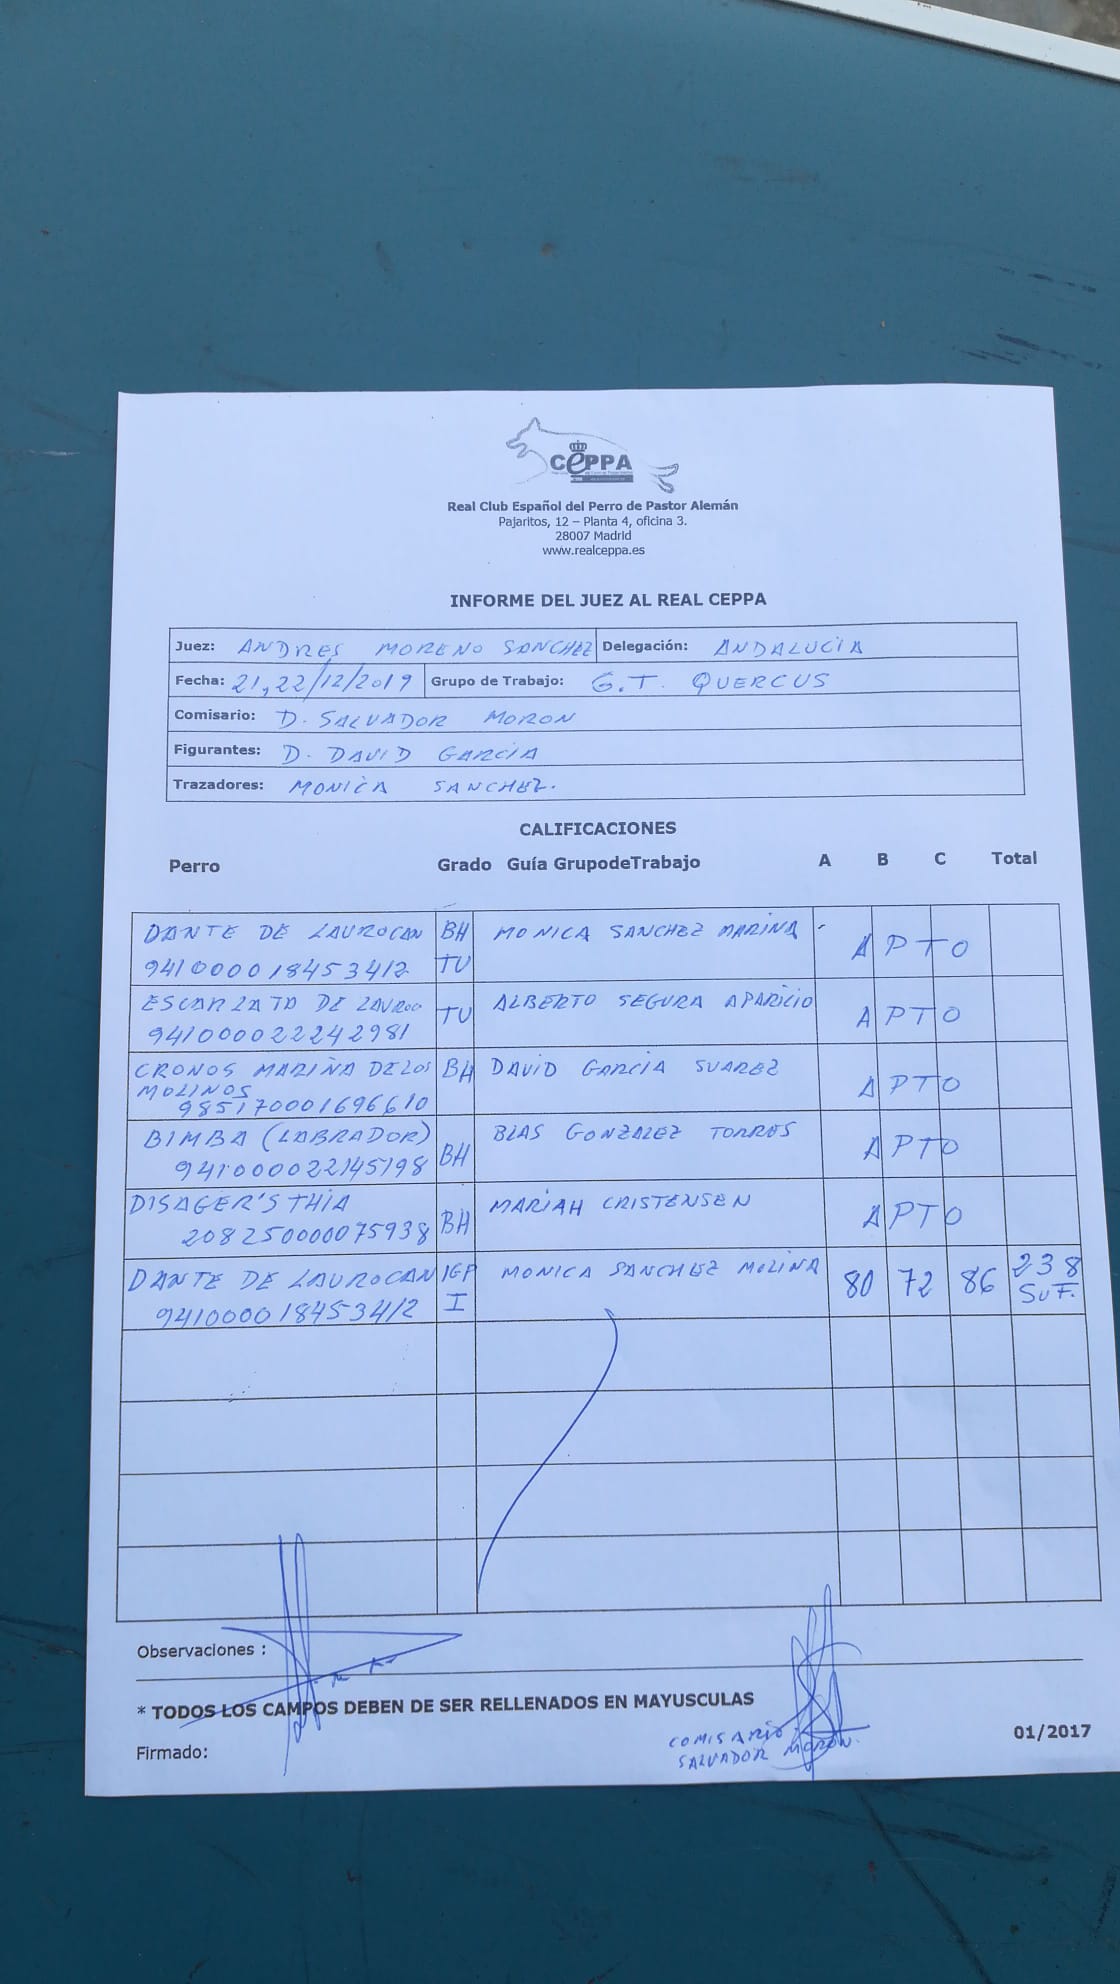 CEPPA
Real Club Español del Perro de Pastor Alemán
Pajaritos, 12 – Planta 4, oficina 3.
28007 Madrid
www.realceppa.es
INFORME DEL JUEZ AL REAL CEPPA
Juez: ANDRES MORENO SANCHEZ Delegación: ANDALUCIA
Fecha: 21,22/12/2019 Grupo de Trabajo: G.T. QUERCUS
Comisario: D. SALVADOR MORON
Figurantes: D. DAVID GARCIA
Trazadores: MONICA SANCHEZ.
CALIFICACIONES
Perro Grado Guía GrupodeTrabajo A B C Total
DANTE DE LAUROCAN BH MONICA SANCHEZ MARINA APTO
941000018453412 TU
ESCARLATA DE LAUROC TU ALBERTO SEGURA APARICIO APTO
941000022242981
CRONOS MARIÑA DE LOS BH DAVID GARCIA SUAREZ APTO
MOLINOS
985170001696610
BIMBA (LABRADOR) BH BLAS GONZALEZ TORRES APTO
941000022145198
DISAGER'S THIA BH MARIAH CRISTENSEN APTO
208250000075938
DANTE DE LAUROCAN IGP MONICA SANCHEZ MOLINA 80 72 86 238
941000018453412 I SUF.
Observaciones :
* TODOS LOS CAMPOS DEBEN DE SER RELLENADOS EN MAYUSCULAS
Firmado:
COMISARIO
SALVADOR MORON.
01/2017